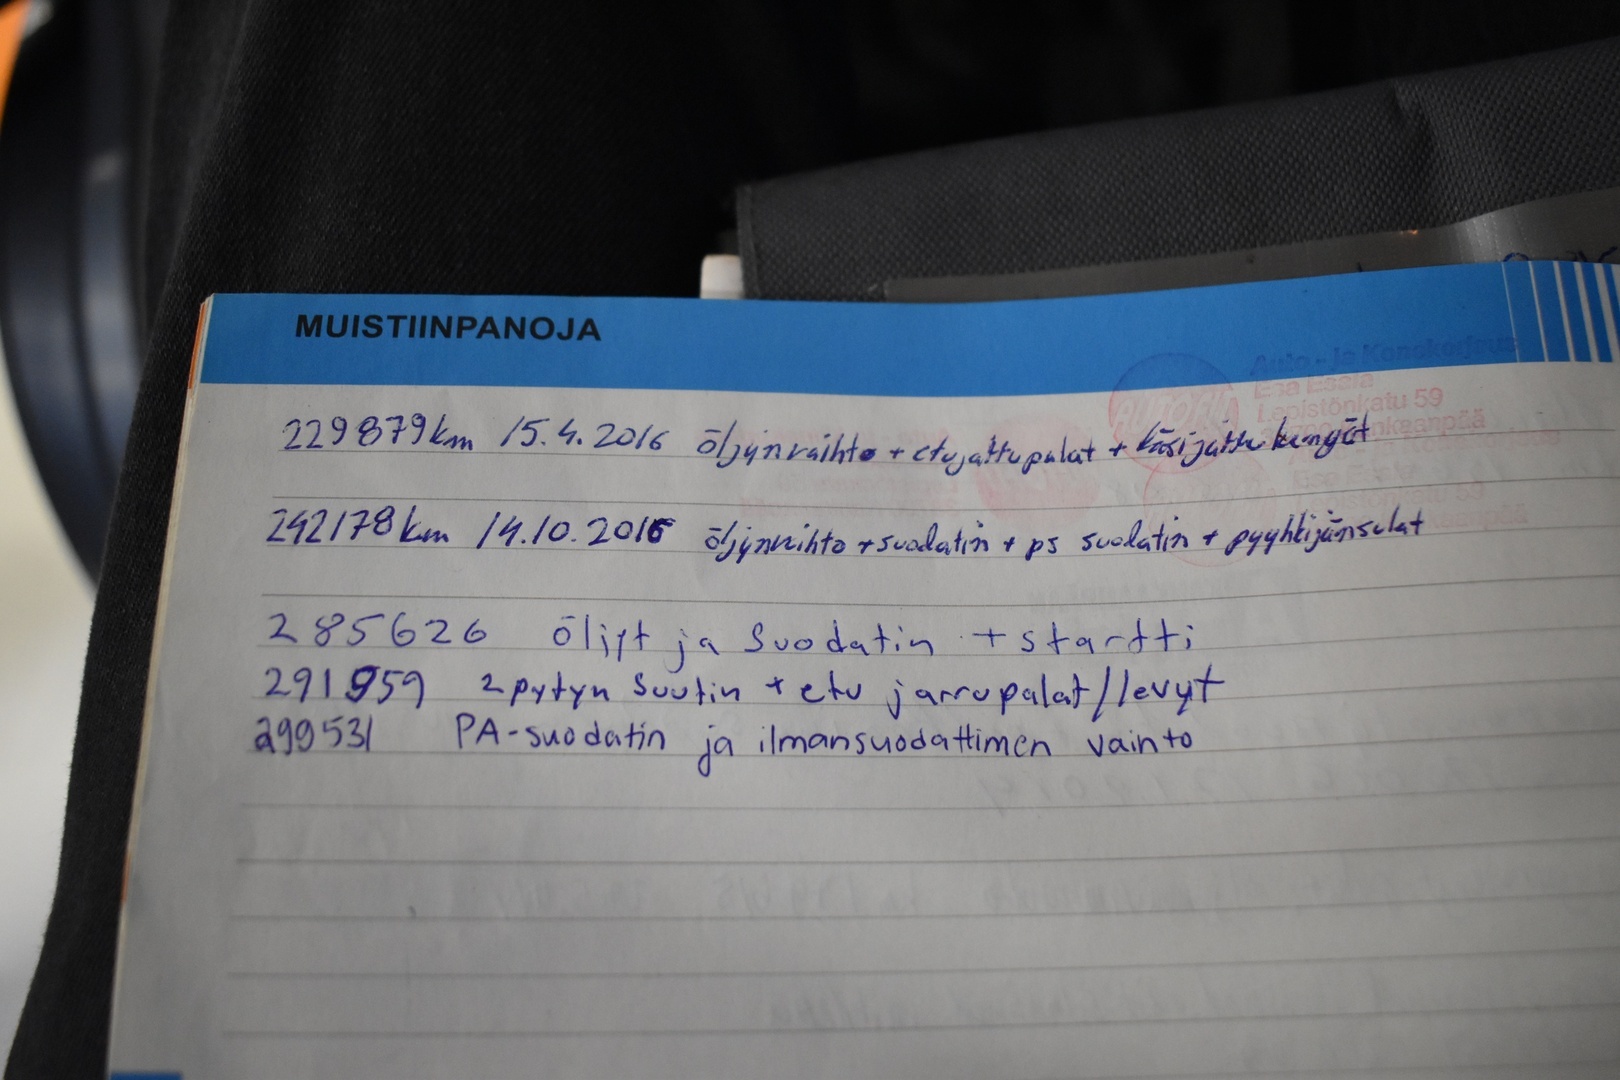 MUISTIINPANOJA
Auto - ja Konekorjaus
Esa Essra
Lapistönkatu 59
229879km 15.4.2016 öljynvaihto + etujattupalat + käsijattu
242178km 14.10.2016 öljynvaihto + suodatin + ps suodatin + pyyhkijänsulat
285626 öljyt ja suodatin + startti
291959 2 pytyn suutin + etu jarrupalat/levyt
299531 PA-suodatin ja ilmansuodattimen vainto